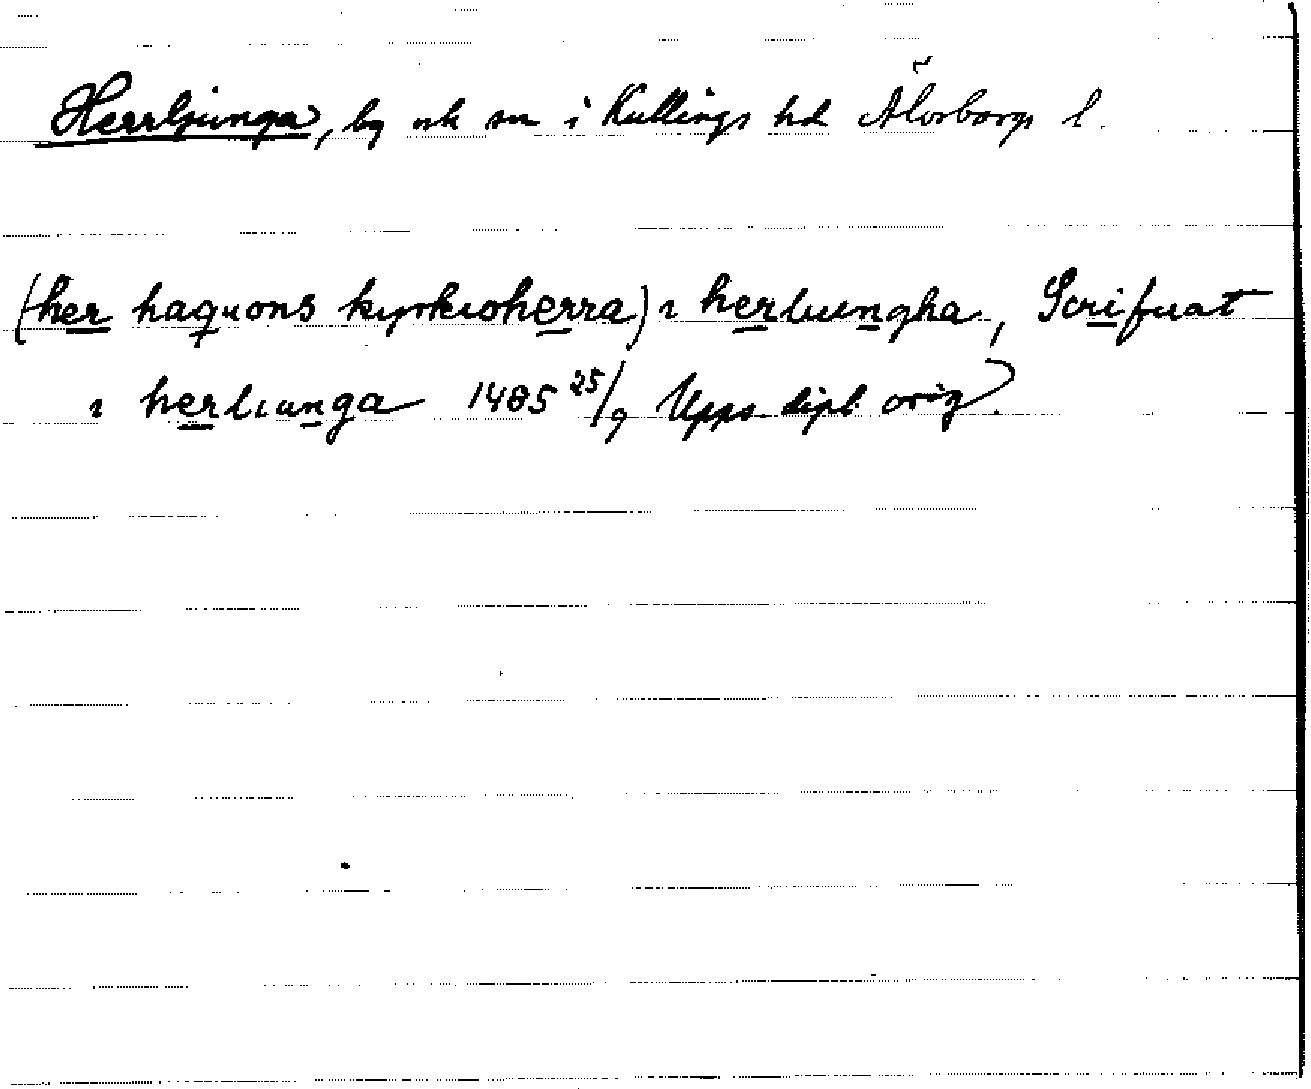 Herrljunga, by och sn i Kullings hd Älvsborgs l.
(her haquons kyrkioherra) i herliungha, Scrifuat
i herliunga 1485 25/9 Upps dipl. orig.